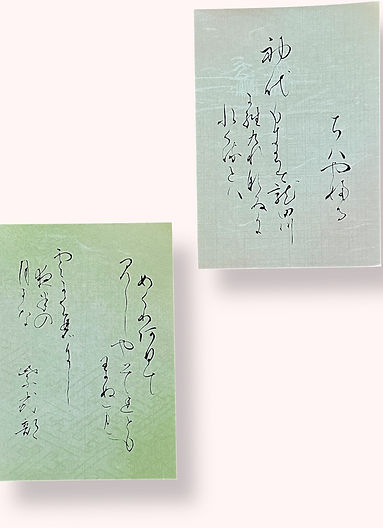 ちハや婦る
神代
もきかす龍田川
からくれなゐに
水くゝるとハ
めくりあひて
見しやそれとも
わかぬまに
雲かくれにし
夜半の
月かな
紫式部